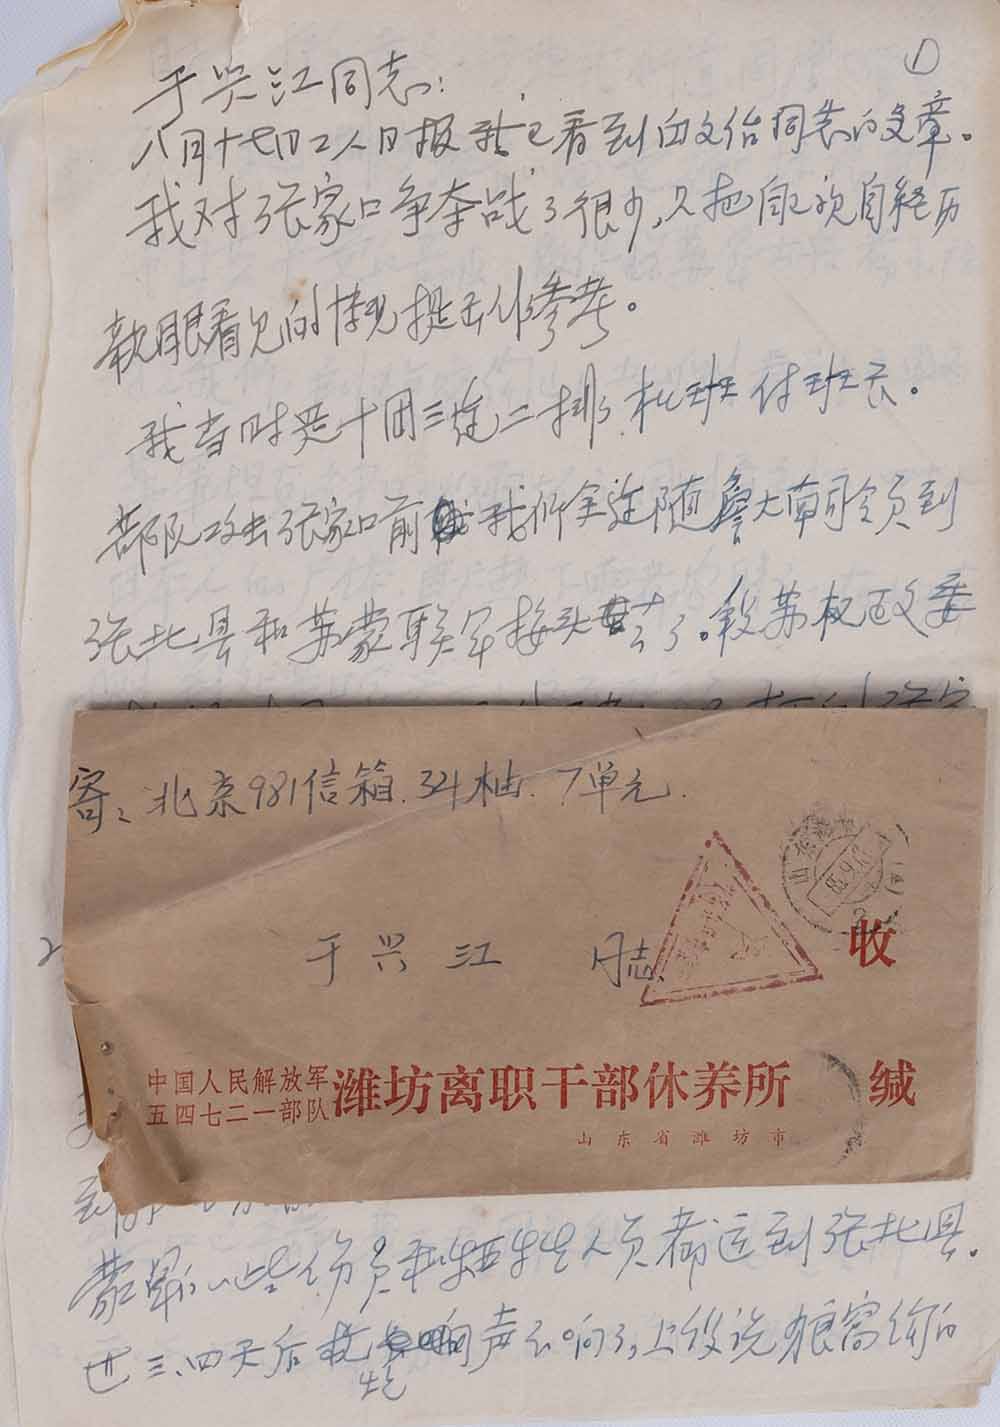 ①
于兴江同志:
八月十七日工人日报我已看到由文治同志的文章。
我对张家口争夺战了很少,只把自己亲自经历
亲眼看见的情况提出作参考。
我当时是十团三连二排 机班付班长。
部队攻击张家口前 我们全连随詹大南司令员到
张北县和苏蒙联军接头去了。段苏权政委
寄:北京981信箱.34栋.7单元.
于兴江 同志
收
中国人民解放军
五四七二一部队
潍坊离职干部休养所 缄
山东省潍坊市
蒙军的一些伤员和牺牲人员都运到张北县。
过三、四天后 声不响了,上级说狼窝沟的